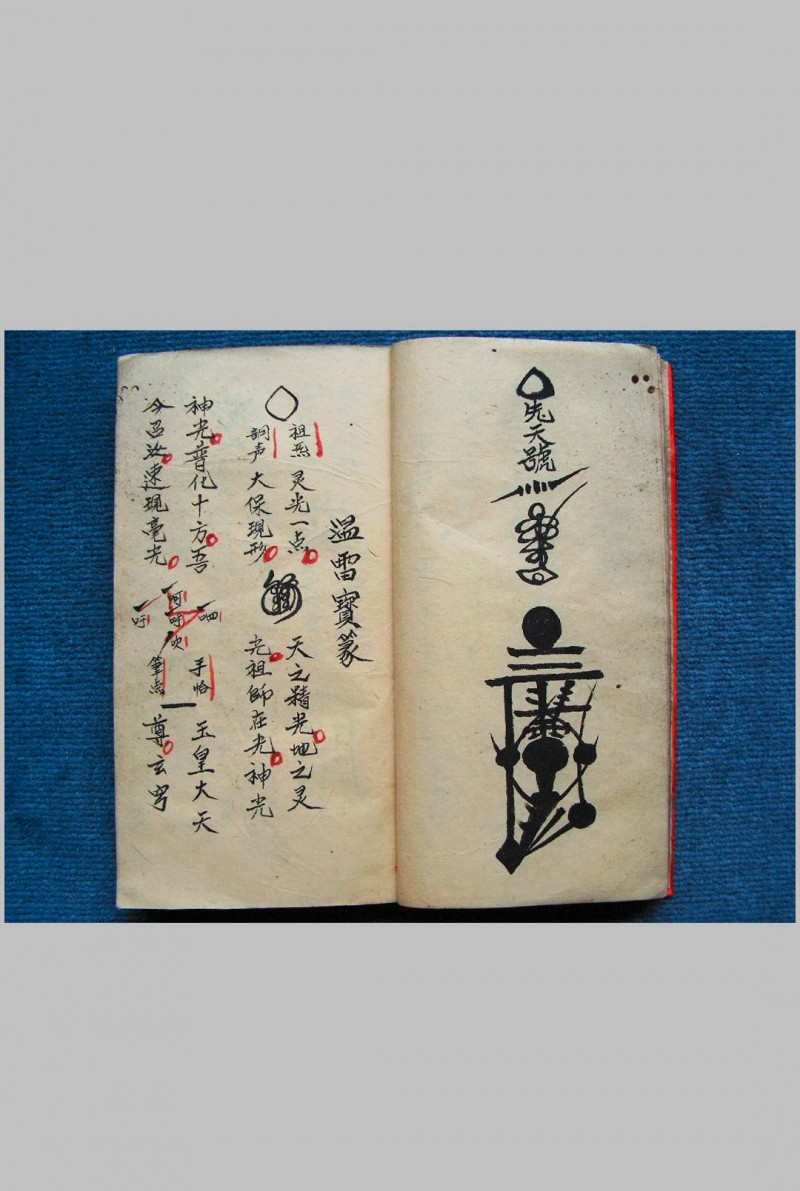 先天號
溫雷寶篆
祖炁 灵光一点 天之精光地之灵
大保現形 光祖師在光神光
神光普化十方吾 手恰 玉皇大天
今召汝速現毫光 呵 呼 吹 呬 呼 筆点 尊玄穹